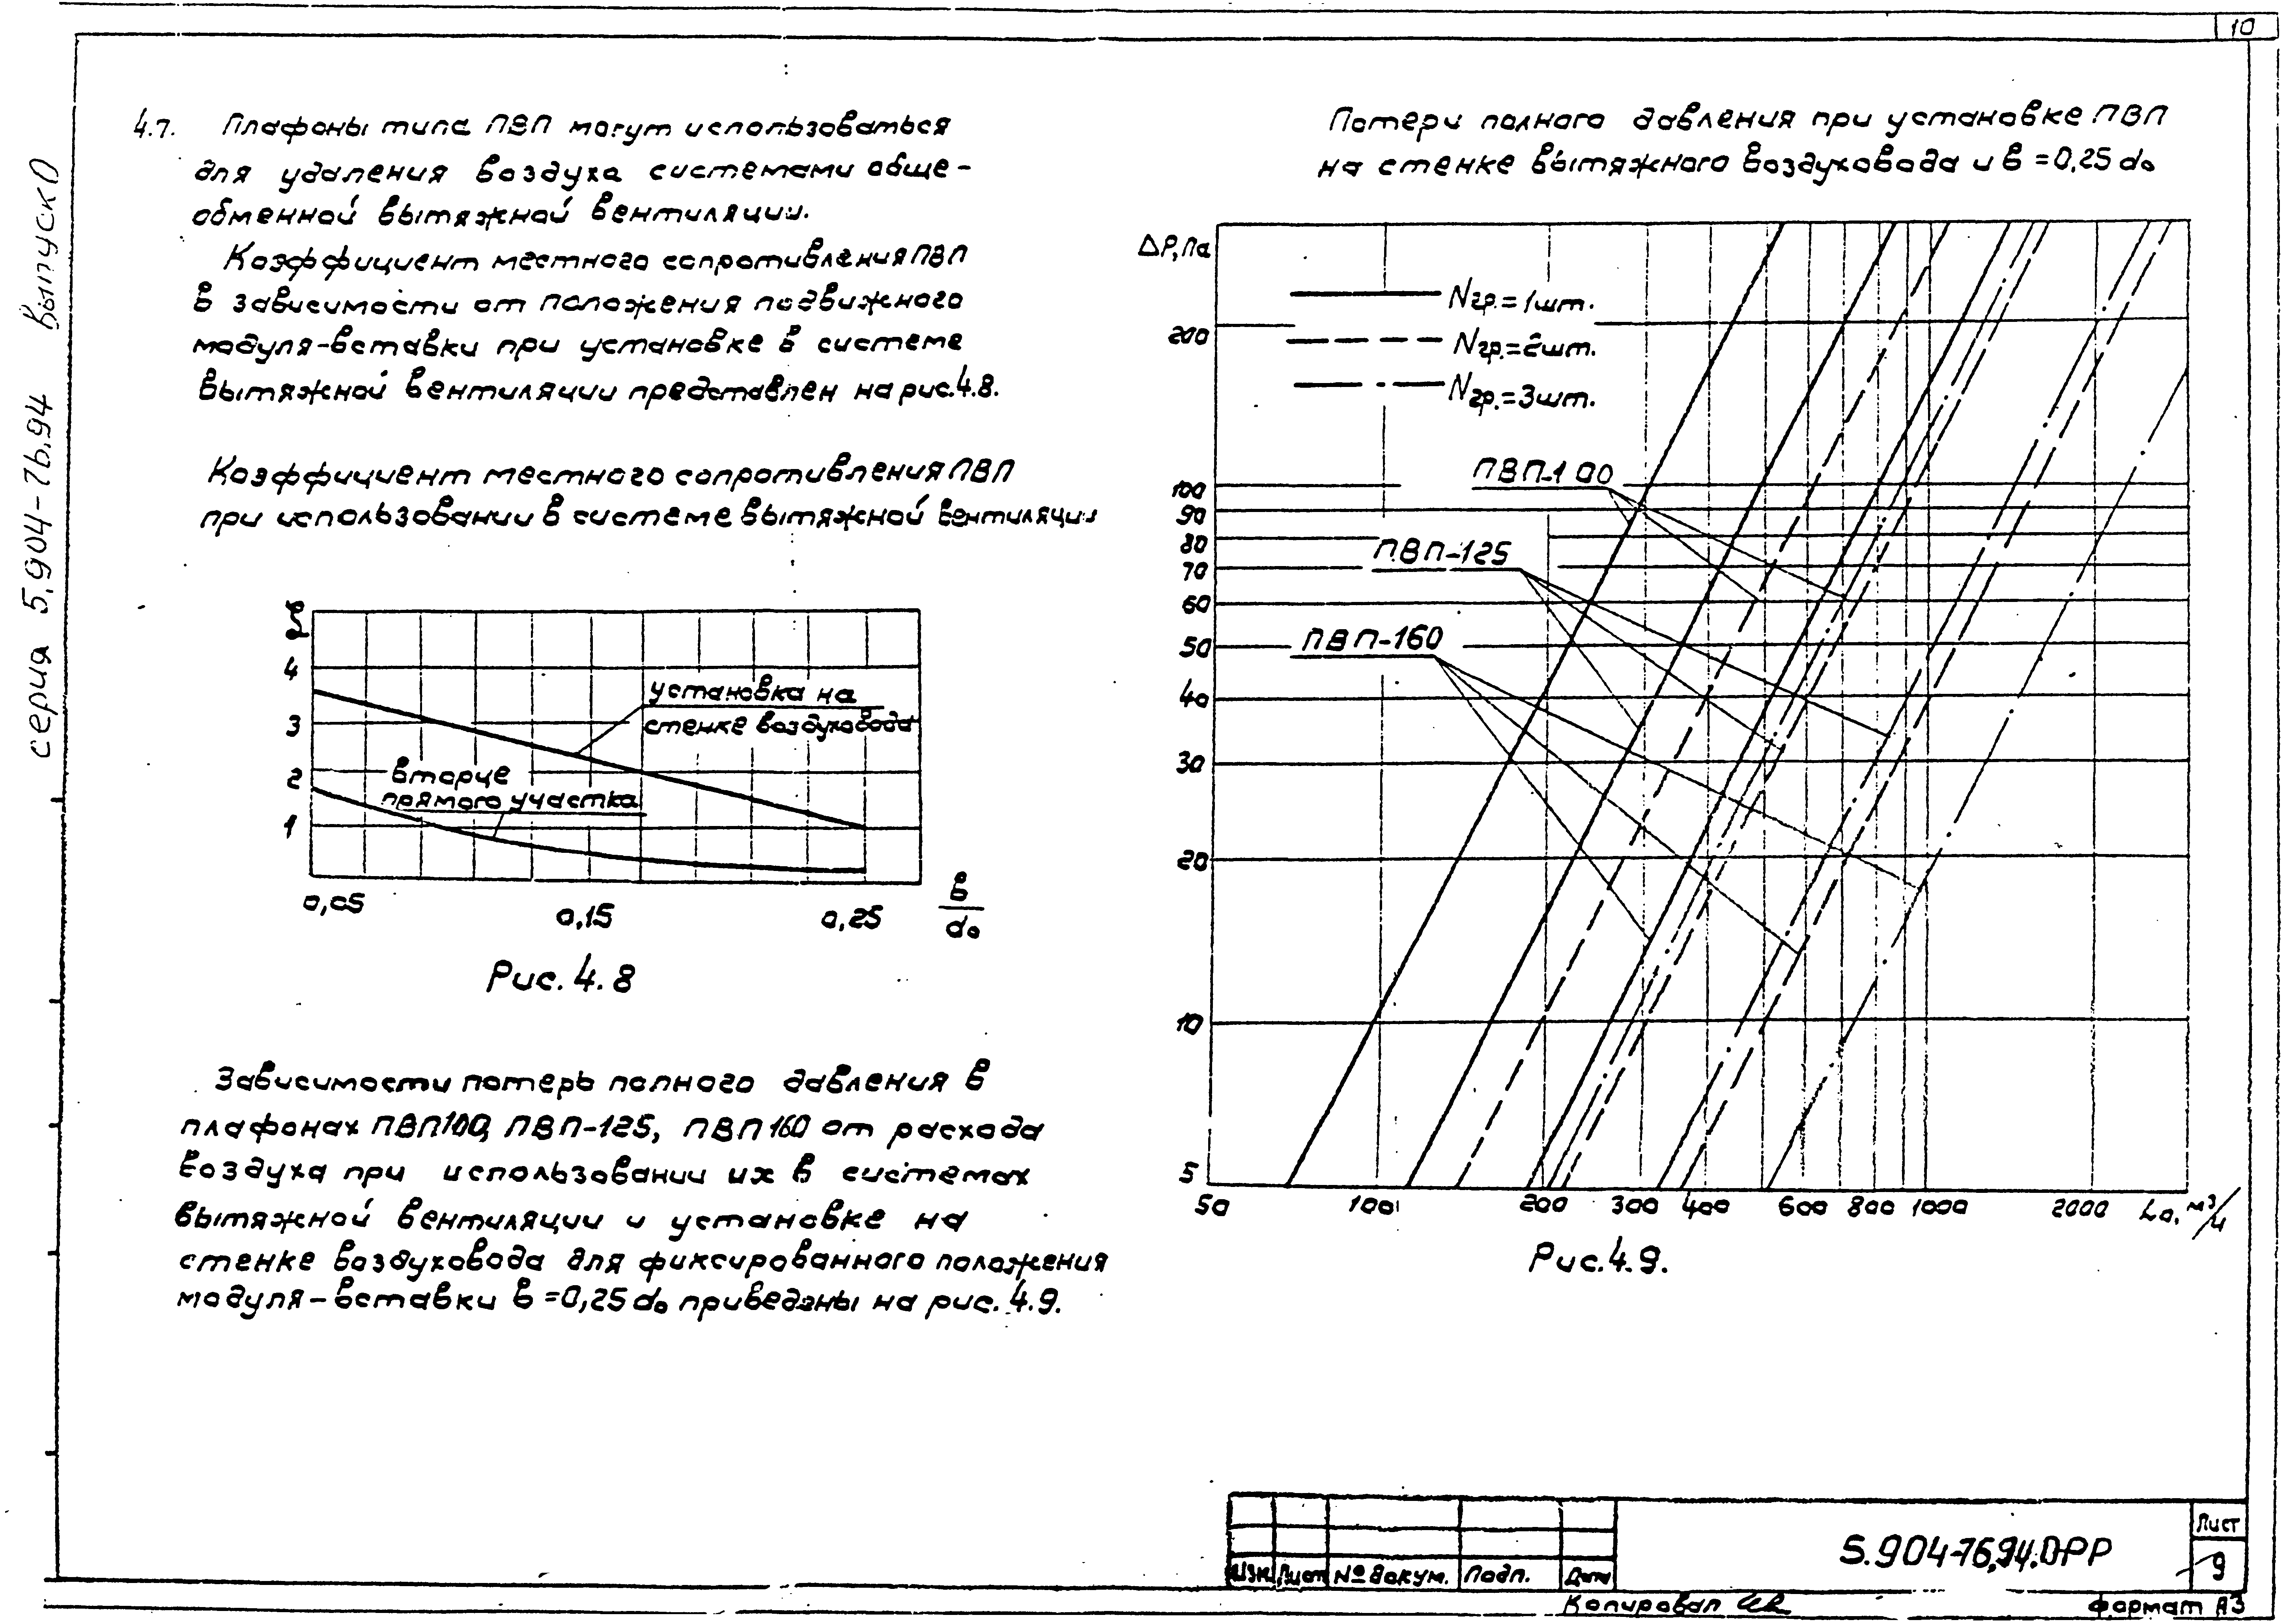 10
серия 5.904-76.94 Выпуск 0
4.7. Плафоны типа ПВП могут использоваться
для удаления воздуха системами обще-
обменной вытяжной вентиляции.
Коэффициент местного сопротивления ПВП
в зависимости от положения подвижного
модуля-вставки при установке в системе
вытяжной вентиляции представлен на рис.4.8.
Коэффициент местного сопротивления ПВП
при использовании в системе вытяжной вентиляции
4
3
2
1
установка на
стенке воздуховода
в торце
прямого участка
0,05
0,15
0,25
в
d₀
Рис. 4.8
Зависимости потерь полного давления в
плафонах ПВП100, ПВП-125, ПВП 160 от расхода
воздуха при использовании их в системах
вытяжной вентиляции и установке на
стенке воздуховода для фиксированного положения
модуля-вставки в =0,25 d₀ приведены на рис. 4.9.
Потери полного давления при установке ПВП
на стенке вытяжного воздуховода и в =0,25 d₀
ΔР, Па
Nгр.=1шт.
Nгр.=2шт.
Nгр.=3шт.
200
ПВП-100
100
90
80
ПВП-125
70
60
ПВП-160
50
40
30
20
10
5
50 100 200 300 400 600 800 1000 2000 Lо, м³/ч
Рис.4.9.
Изм. Лист № докум. Подп. Дата
5.904-76.94.0РР
Лист
9
Копировал
Формат А3